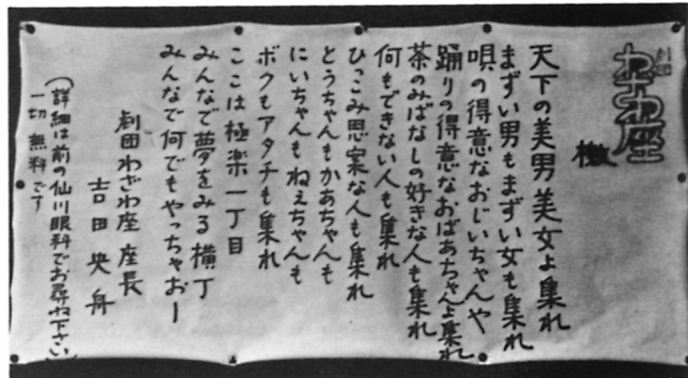 劇団
わざわ座
檄
天下の美男美女よ集れ
まずい男もまずい女も集れ
唄の得意なおじいちゃんや
踊りの得意なおばあちゃんよ集れ
茶のみばなしの好きな人も集れ
何もできない人も集れ
ひっこみ思案な人も集れ
とうちゃんもかあちゃんも
にいちゃんもねぇちゃんも
ボクもアタチも集れ
ここは極楽一丁目
みんなで夢をみる横丁
みんなで何でもやっちゃおー
劇団わざわ座 座長
吉田央舟
(詳細は前の仙川眼科でお尋ね下さい)
一切無料です